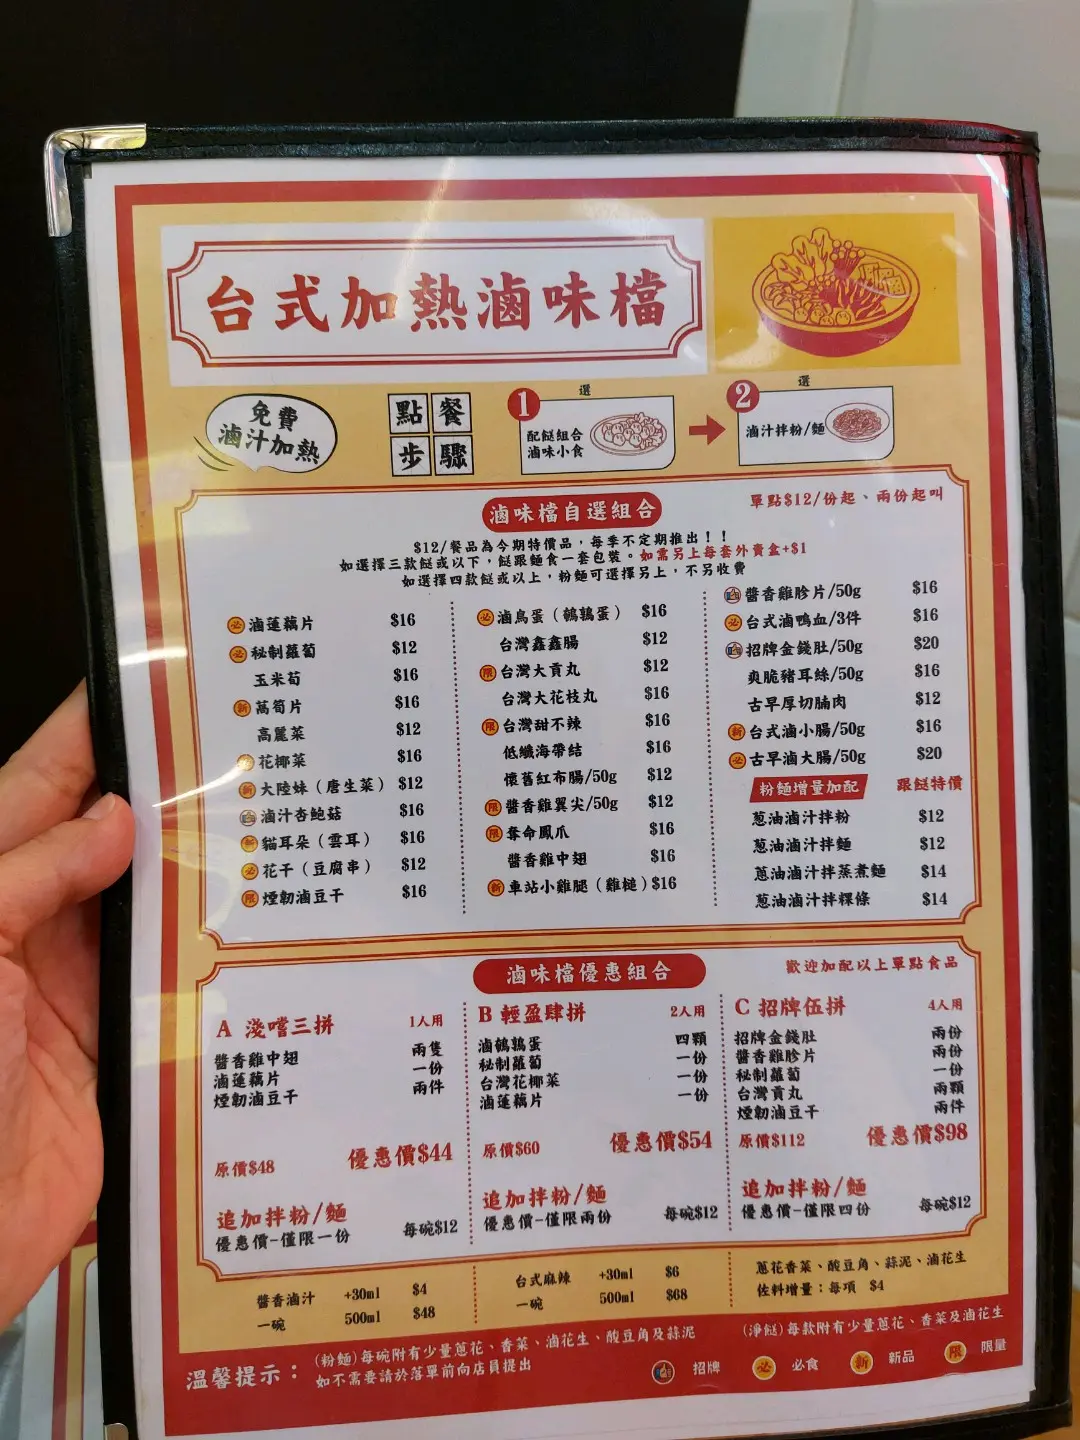 台式加熱滷味檔
免費
滷汁加熱
點餐
步驟
1 選
配餸組合
滷味小食
2 選
滷汁拌粉/麵
滷味檔自選組合
單點$12/份起、兩份起叫
$12/餐品為今期特價品，每季不定期推出！！
如選擇三款餸或以下，餸跟麵食一套包裝。如需另上每套外賣盒+$1
如選擇四款餸或以上，粉麵可選擇另上，不另收費
必 滷蓮藕片 $16
必 秘制蘿蔔 $12
玉米荀 $16
新 萵筍片 $16
高麗菜 $12
花椰菜 $16
新 大陸妹（唐生菜） $12
滷汁杏鮑菇 $16
新 貓耳朵（雲耳） $16
必 花干（豆腐串） $12
限 煙韌滷豆干 $16
必 滷鳥蛋（鵪鶉蛋） $16
台灣鑫鑫腸 $12
限 台灣大貢丸 $12
台灣大花枝丸 $16
限 台灣甜不辣 $16
低纖海帶結 $16
懷舊紅布腸/50g $12
限 醬香雞翼尖/50g $12
限 奪命鳳爪 $16
醬香雞中翅 $16
新 車站小雞腿（雞槌） $16
醬香雞胗片/50g $16
必 台式滷鴨血/3件 $16
招牌金錢肚/50g $20
爽脆豬耳絲/50g $16
古早厚切腩肉 $12
新 台式滷小腸/50g $16
必 古早滷大腸/50g $20
粉麵增量加配 跟餸特價
蔥油滷汁拌粉 $12
蔥油滷汁拌麵 $12
蔥油滷汁拌蒸煮麵 $14
蔥油滷汁拌粿條 $14
滷味檔優惠組合
歡迎加配以上單點食品
A 淺嚐三拼 1人用
醬香雞中翅 兩隻
滷蓮藕片 一份
煙韌滷豆干 兩件
原價$48 優惠價$44
追加拌粉/麵
優惠價-僅限一份 每碗$12
B 輕盈肆拼 2人用
滷鵪鶉蛋 四顆
秘制蘿蔔 一份
台灣花椰菜 一份
滷蓮藕片 一份
原價$60 優惠價$54
追加拌粉/麵
優惠價-僅限兩份 每碗$12
C 招牌伍拼 4人用
招牌金錢肚 兩份
醬香雞胗片 兩份
秘制蘿蔔 一份
台灣貢丸 兩顆
煙韌滷豆干 兩件
原價$112 優惠價$98
追加拌粉/麵
優惠價-僅限四份 每碗$12
醬香滷汁 +30ml $4
一碗 500ml $48
台式麻辣 +30ml $6
一碗 500ml $68
蔥花香菜、酸豆角、蒜泥、滷花生
佐料增量：每項 $4
溫馨提示：
(粉麵)每碗附有少量蔥花、香菜、滷花生、酸豆角及蒜泥
如不需要請於落單前向店員提出
(淨餸)每款附有少量蔥花、香菜及滷花生
招牌 必 必食 新 新品 限 限量